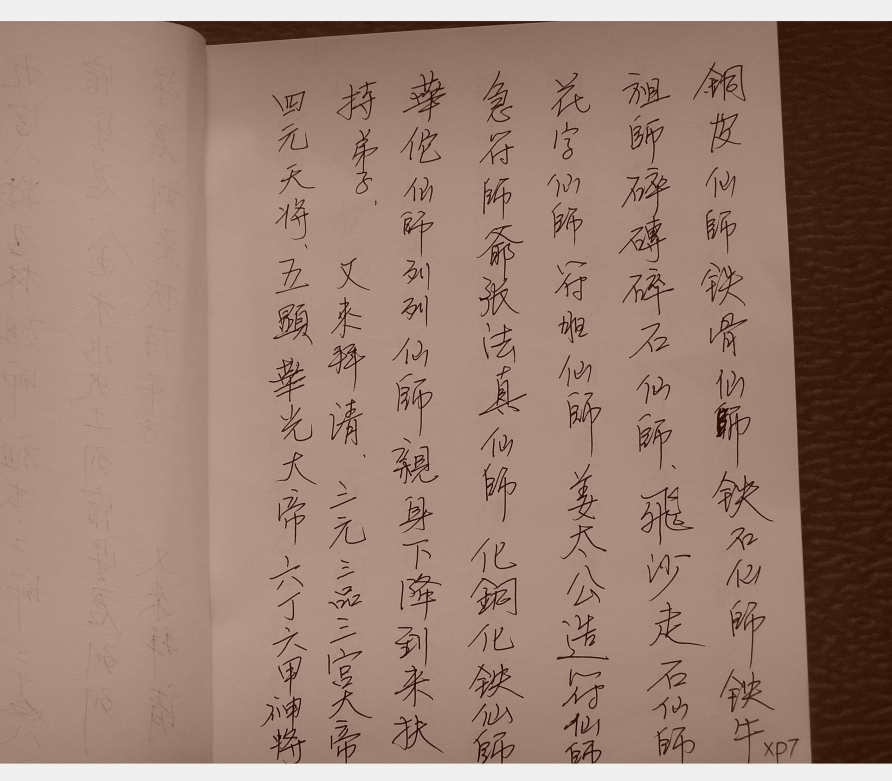 銅皮仙師鉄骨仙師鉄石仙師鉄牛
祖師碎磚碎石仙師、飛沙走石仙師
花字仙師符祖仙師姜太公造符仙師
急符師爺張法真仙師化銅化鉄仙師
華佗仙師列列仙師親身下降到来扶
持弟子、又来拜请、三元三品三宫大帝
四元天将、五顯華光大帝六丁六甲神將
xp7